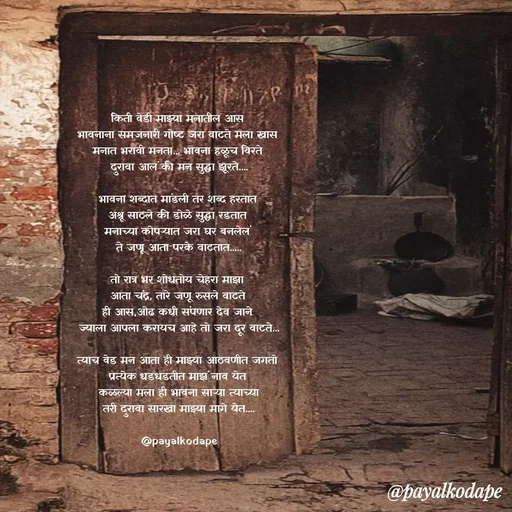 किती वेडी माझ्या मनातील आस
भावनाना समजनारी गोष्ट जरा वाटते मला खास
मनात भरावी मनता... भावना हळूच विरते
दुरावा आलं की मन सुद्धा झूरते....
भावना शब्दात मांडली तर शब्द हरतात
अश्रू साठले की डोळे सुद्धा रडतात
मनाच्या कोपऱ्यात जरा घर बनलेलं
ते जणू आता परके वाटतात.....
तो रात्र भर शोधतोय चेहरा माझा
आता चंद्र, तारे जणू रुसले वाटते
ही आस,ओढ कधी संपणार देव जाने
ज्याला आपला करायच आहे तो जरा दूर वाटते...
त्याच वेड मन आता ही माझ्या आठवणीत जगतो
प्रत्येक धडधडतीत माझं नाव येत
कळल्या मला ही भावना साऱ्या त्याच्या
तरी दुरावा सारखा माझ्या मागे येत....
@payalkodape
@payalkodape